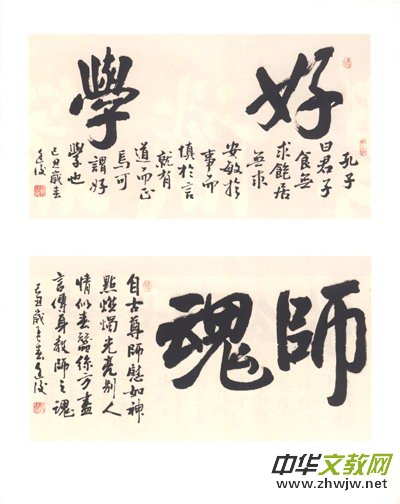 好學
孔子
曰君子
食無
求飽居
無求
安敏於
事而
慎於言
就有
道而正
焉可
謂好
學也
己丑歲春
師魂
自古尊師如神
點燃燭光亮別人
情似春蠶絲方盡
言傳身教師之魂
己丑歲春
中华文教网
www.zhwjw.net